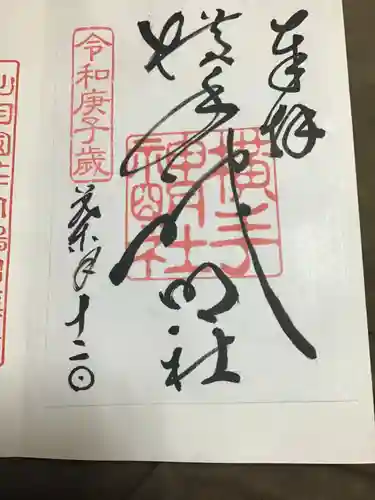 奉拝
横手神明社
横手神明社
令和庚子歳
葉月十二日